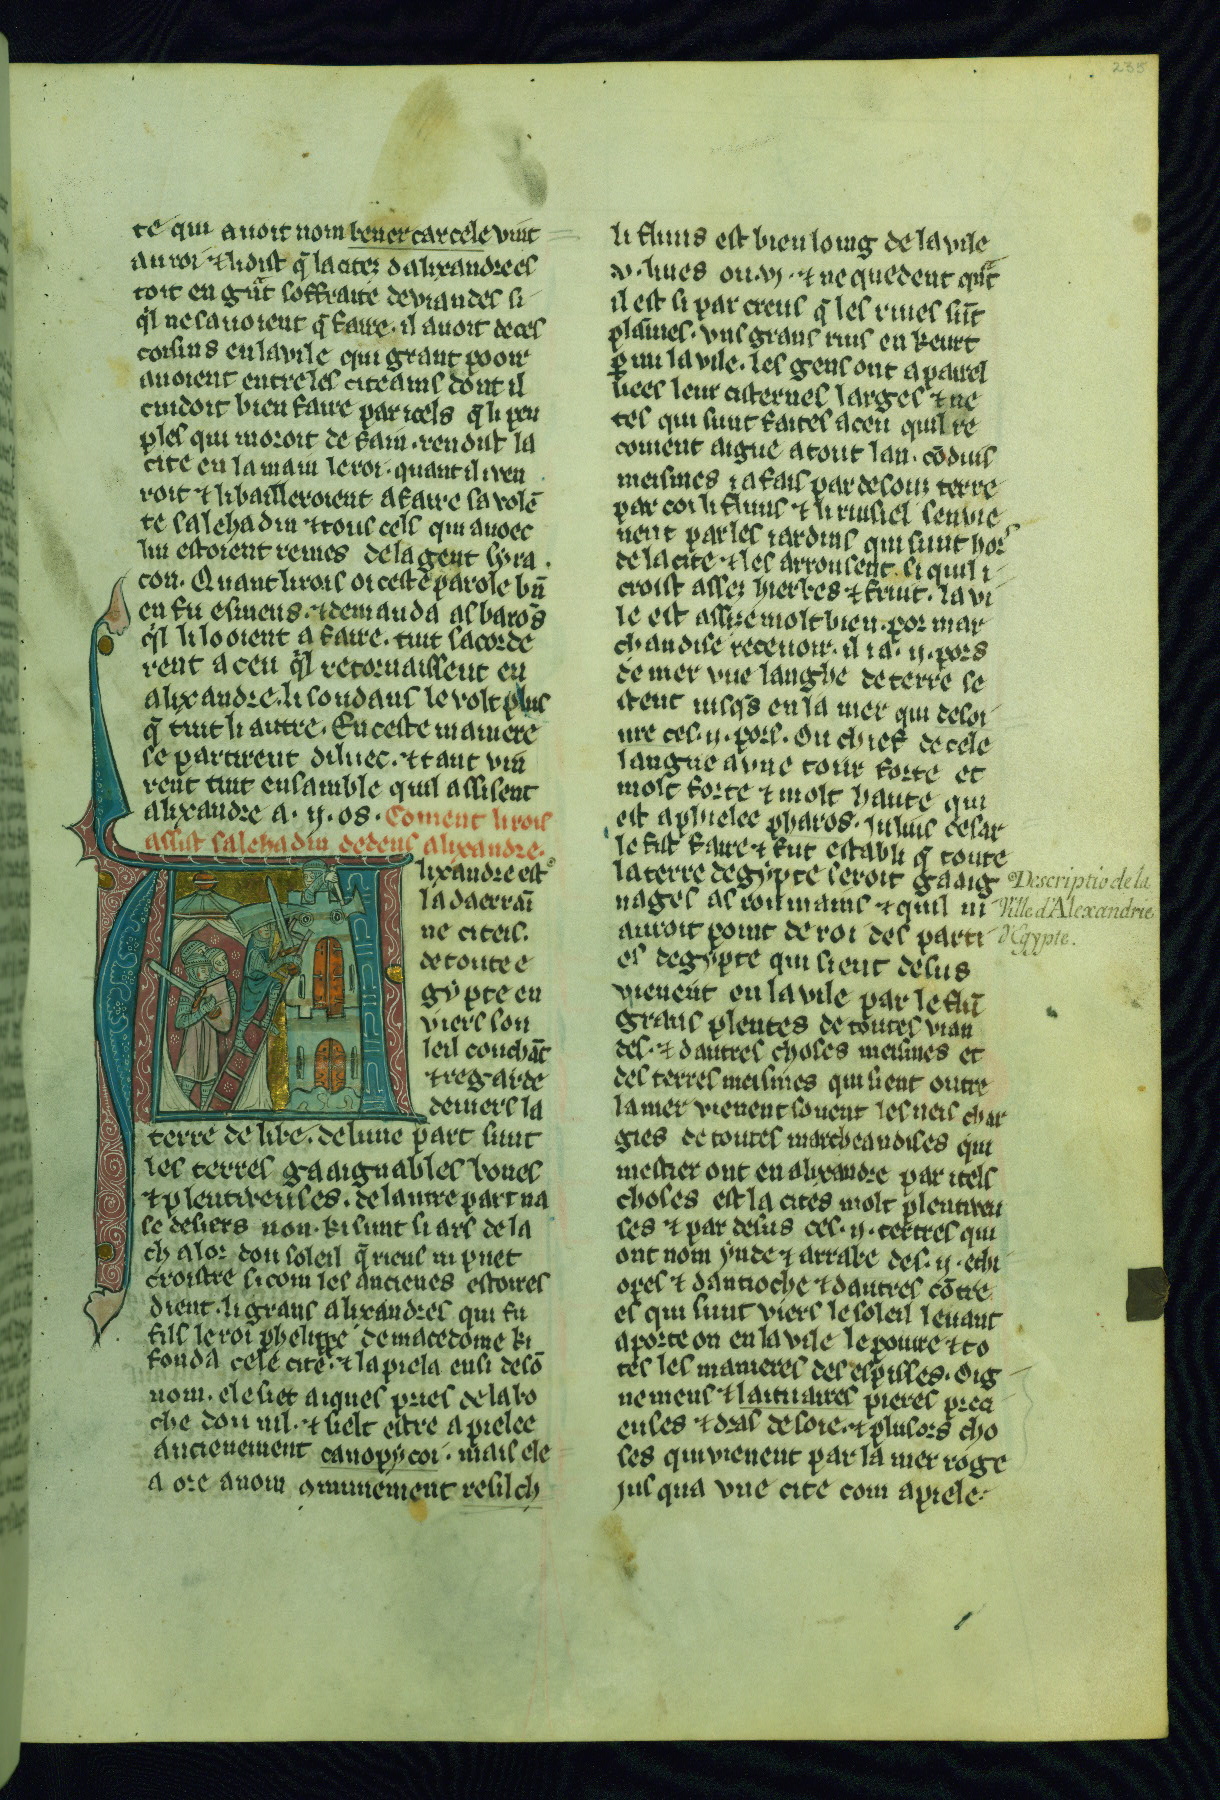 235
te qui avoit nom bener carcele vint
au roi ⁊ li dist q̃ la citez dalixandre es
toit en gñt soffraite de viandes si
q̃l ne savoient q̃ faire. il avoit de ces
coisins en la vile qui grant pooir
avoient entre les citeains dont il
cuidoit bien faire par icels q̃ li peu
ples qui moroit de fain. rendist la
cite en la main le roi. quant il iven
roit ⁊ li bailleroient a faire sa volẽ
te salehadin ⁊ tous cels qui avoec
lui estoient remes de la gent syra
con. Quant li rois oi ceste parole bñ
en fu esmeus. ⁊ demanda as barõs
q̃l li looient a faire. tuit sacorde
rent a ceu q̃l retornaissent en
alixandre. li soudans le volt plus
q̃ tuit li autre. En ceste maniere
se partirent diluec. ⁊ tant vin
rent tuit ensamble quil assisent
alixandre a .ij. os. Coment li rois
assist salehadin dedens alixandre.
Alixandre est
la daerraĩ
ne citeis.
de toute e
gypte en
viers son
leil couchãt
⁊ regarde
deviers la
terre de libe. de lune part sunt
les terres gaaignables boues
⁊ plentiveuses. de lautre part na
se desiers non. ki sunt si ars de la
chalor dou soleil q̃ riens ni puet
croistre si com les ancienes estoires
dient. li grans alixandres qui fu
fils le roi phelippe de macedoine ki
fonda cele cite. ⁊ lapiela ensi de sõ
nom. ele siet aiques pries de la bo
che dou nil. ⁊ sielt estre apielee
ancienement canopycoi. mais ele
a ore anom omunement resilch
li fluns est bien loing de la vile
.v. liues ou .vj. ⁊ ne quedent qñt
il est si par creus q̃ les rives sũt
plaines. uns grans ruis en keurt
p̱ mi la vile. les gens ont apareil
liees leur cisternes larges ⁊ ne
tes qui sunt faites a ceu quil re
coivent aigue a tout lan. cõduis
meismes i a fais par desouz terre
par coi li fluns ⁊ li ruisiel senvie
nent par les jardins qui sunt hors
de la cite ⁊ les arrousent. si quil i
croist assez hierbes ⁊ fruit. la vi
le est assize molt bien. por mar
chandise recevoir. il i a .ij. pors
de mer une langhe de terre se
stent jusq̃s en la mer qui desoi
vre ces .ij. pors. Ou chief de cele
langue a une tour forte et
molt forte ⁊ molt haute qui
est apielee pharos. julius cesar
le fist faire ⁊ fut establi q̃ toute
la terre degypte seroit gaaig
nages as rommains ⁊ quil ni
auroit point de roi des parti
es degypte qui sient desus
vienent en la vile par le flũ
grans plentes de toutes vian
des. ⁊ dautres choses meismes et
des terres meismes qui sient outre
la mer vienent sovent les neis char
gies de toutes marcheandises qui
mestier ont en alixandre par itels
choses est la cites molt plentiveu
ses ⁊ par desus ces .ij. tertres qui
ont nom ynde ⁊ arrabe des .ij. ethi
opes ⁊ dantioche ⁊ dautres cõtre
es qui sunt viers le soleil levant
aporte on en la vile le poivre ⁊ to
tes les manieres des espisses. Oig
nemens ⁊ laituaires pieres preci
euses ⁊ dras de soie. ⁊ plusors cho
ses qui vienent par la mer roge
jusqua une cite com apiele.
Descriptio de la
Ville d'Alexandrie
d'Egypte.